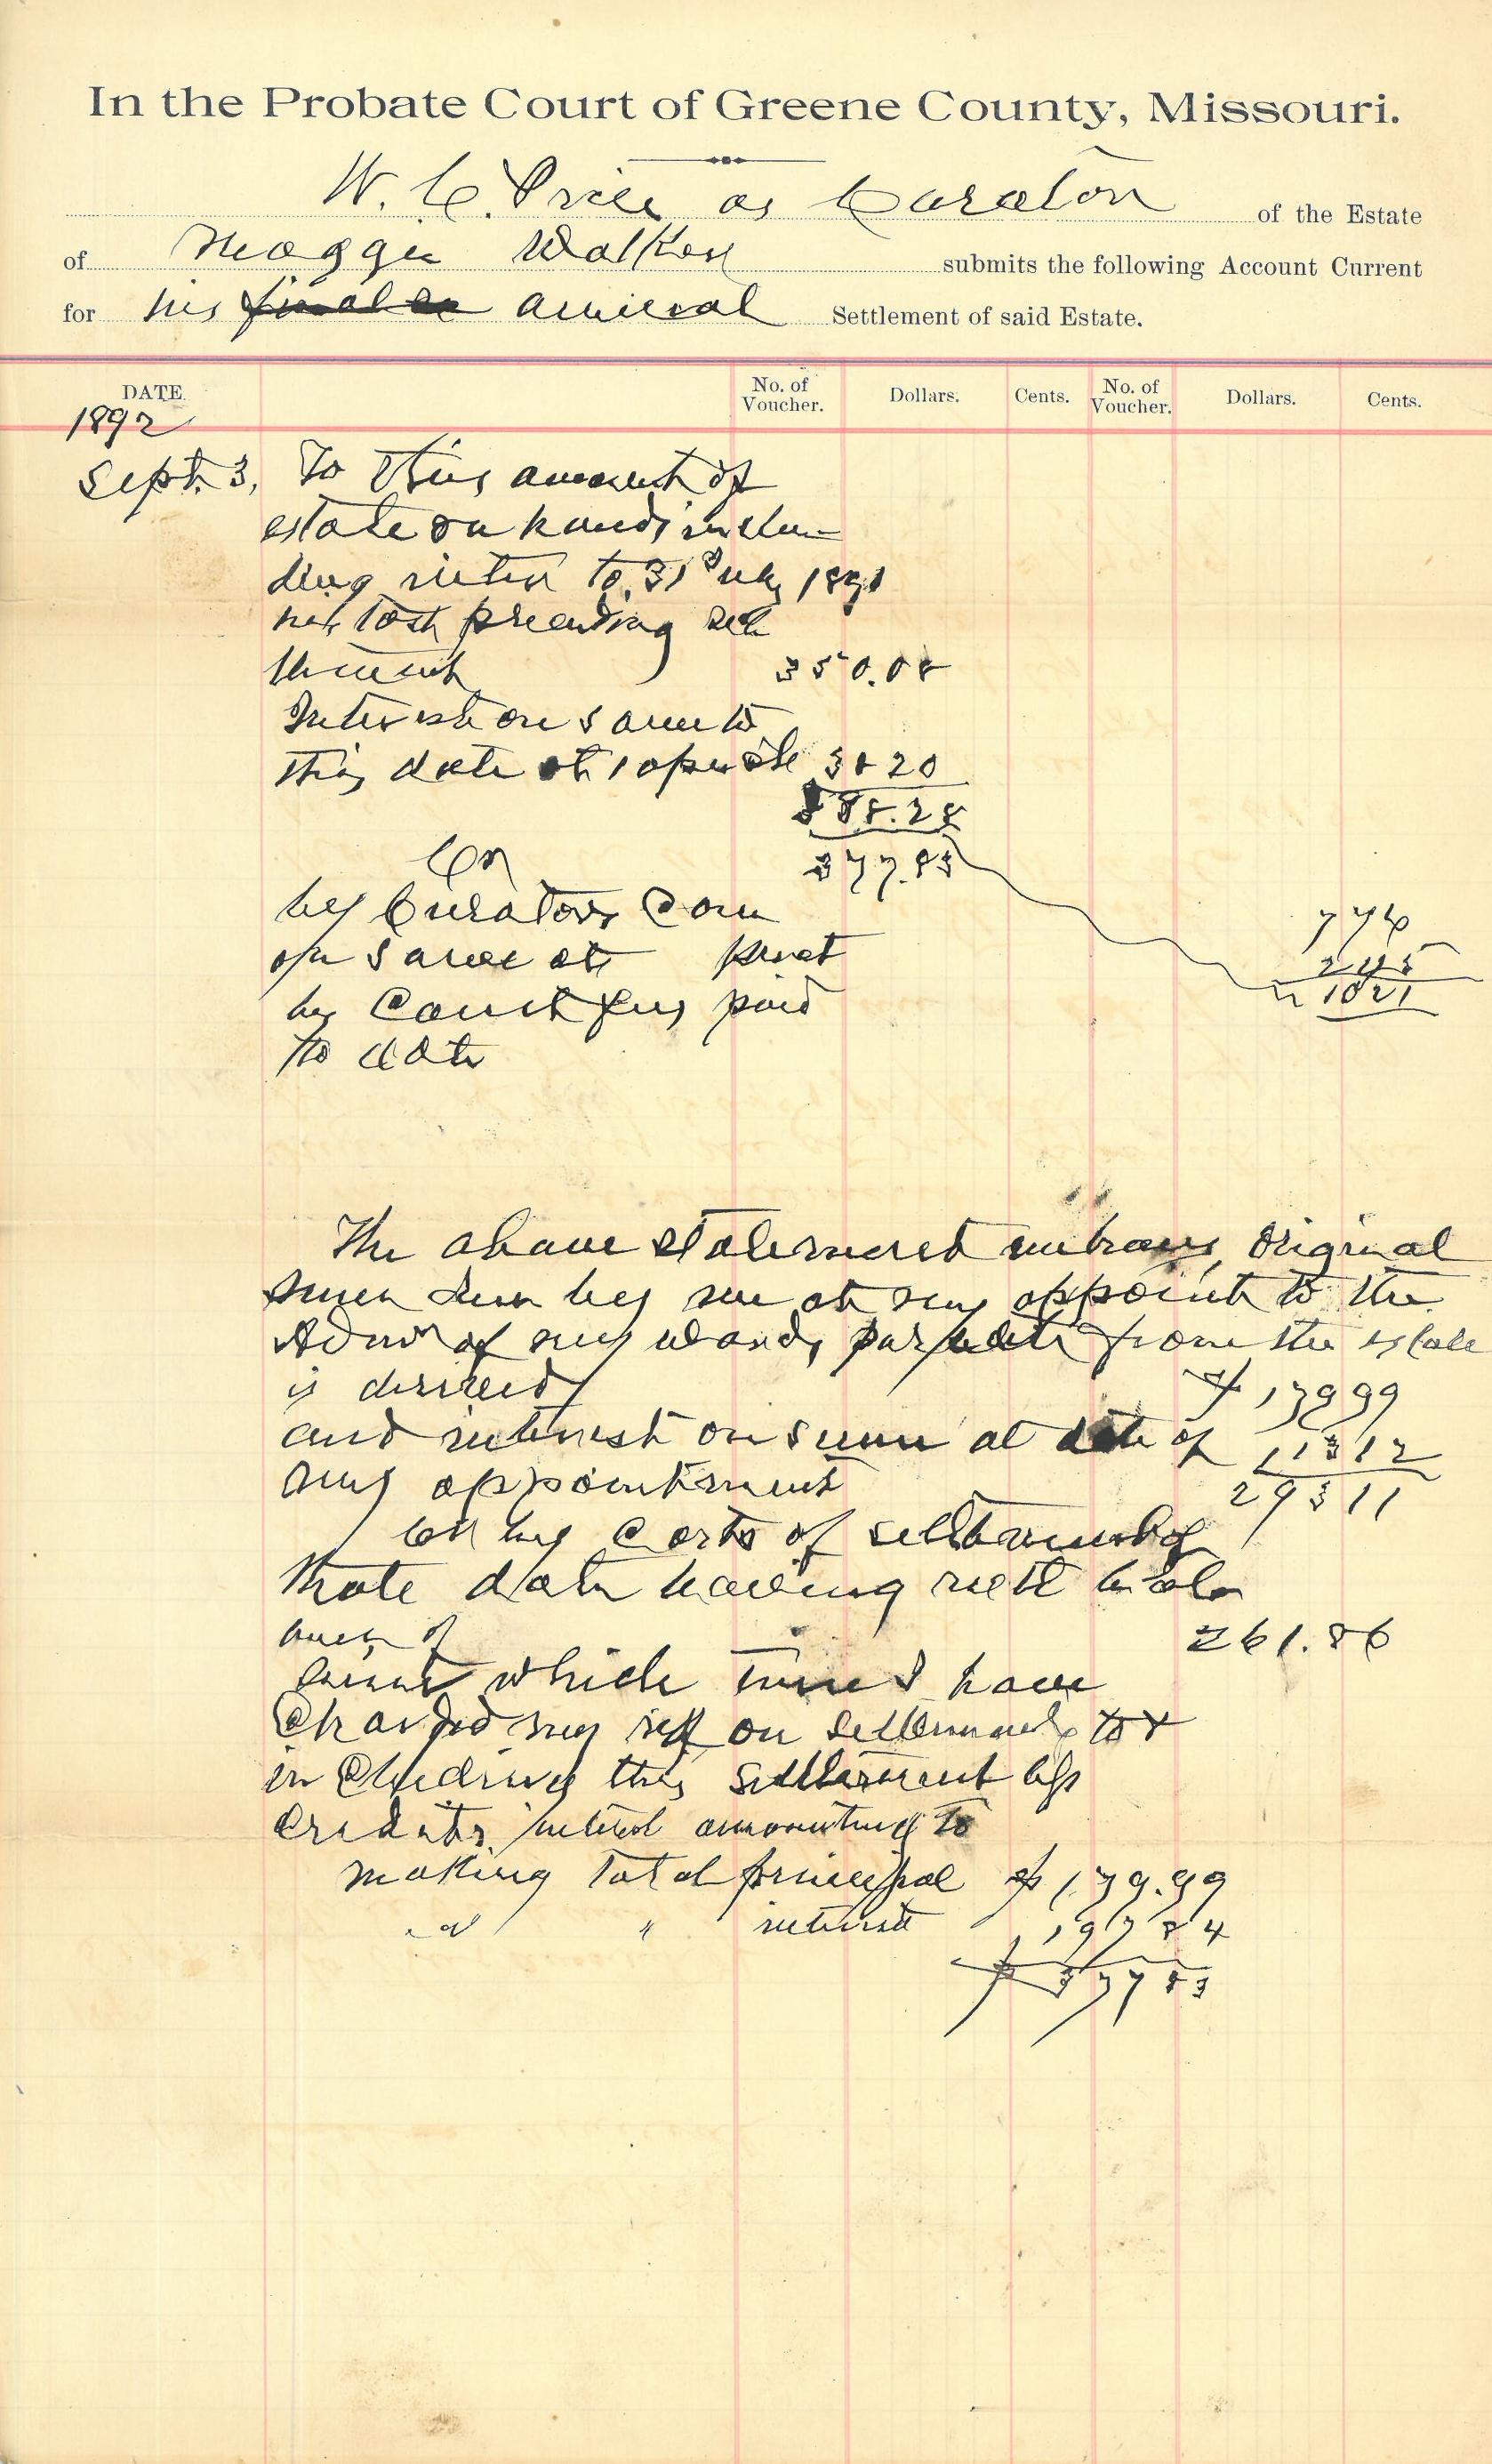 In the Probate Court of Greene County, Missouri.
W. C. Price as Curator of the Estate
of Maggie Walker submits the following Account Current
for his final annual Settlement of said Estate.
DATE. No. of Voucher. Dollars. Cents. No. of Voucher. Dollars. Cents.
1892
Sept. 3, To this amount of
estate on hand, inclu-
ding to 31 July 1891
preceding
350.08
Interest on same to
this date at 10 per 38 20
388.28
Cr 377.83
by Curators Com
on same at 776
245
by Court fees paid 1021
to date
The above statement embraces original
by me at my appoint to the
of my wards, from the estate
is derived $ 179 99
and interest on sum at date of 113 12
my appointment 293 11
Cr by Costs of settlement of
that date leaving nett bala
nce of 261.86
since which time I have
Charged my self on settlements to &
including this settlement less
Credits, interest amounting to
making Total principal $ 179.99
" " interest 197 84
$ 377 83